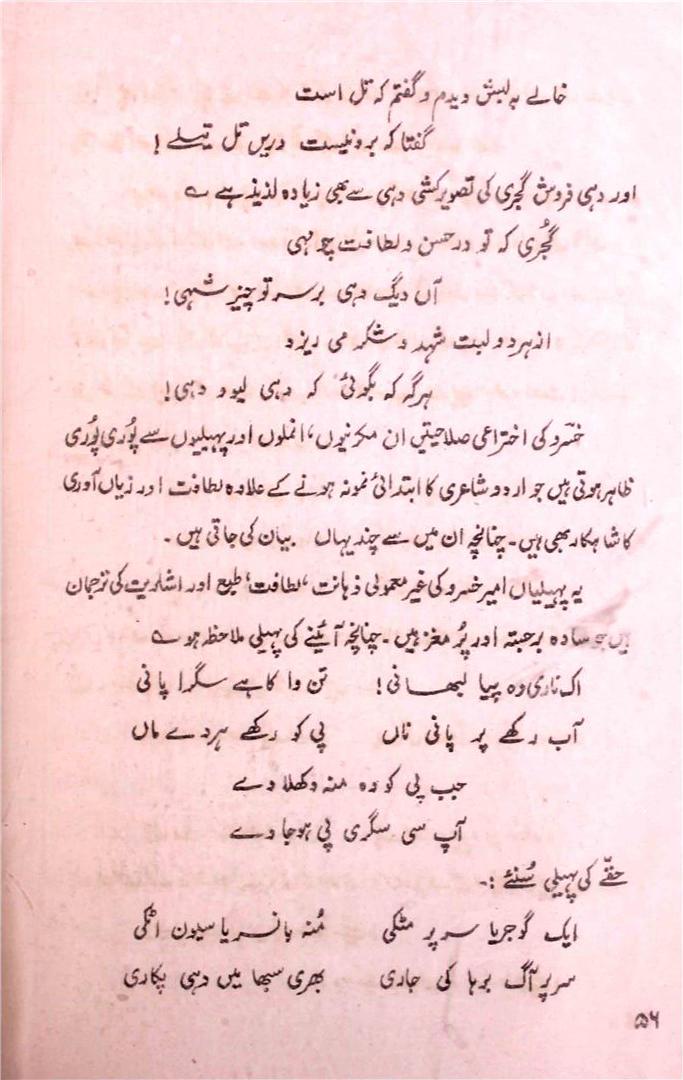 خالے بہ لبش دیدم و گفتم کہ تل است
گفتا کہ برو نیست دریں تل تیلے !
اور دہی فروش گجری کی تصویر کشی دہی سے بھی زیادہ لذیذ ہے ؎
گُجری کہ تو در حسن و لطافت چو نہی
آں دیگ دہی بر سر تو چتر شہی !
از ہر دو لبت شہد و شکر می ریزد
ہرگہ کہ بگوئی کہ دہی لیو دہی !
خسرو کی اختراعی صلاحیتیں ان مکرنیوں، انملوں اور پہیلیوں سے پُوری پُوری
ظاہر ہوتی ہیں جو اردو شاعری کا ابتدائی نمونہ ہونے کے علاوہ لطافت اور زباں آوری
کا شاہکار بھی ہیں۔ چنانچہ ان میں سے چند یہاں بیان کی جاتی ہیں۔
یہ پہیلیاں امیر خسرو کی غیر معمولی ذہانت، لطافت، طبع اور اشاریت کی ترجمان
ہیں جو سادہ برجستہ اور پُر مغز ہیں۔ چنانچہ آئینے کی پہیلی ملاحظہ ہو ؎
اک ناری وہ پیا لبھانی ! تن وا کا ہے سگرا پانی
آب رکھے پر پانی ناں پی کو رکھے ہردے ماں
جب پی کو وہ منہ دکھلاوے
آپ سی سگری پی ہو جاوے
حقّے کی پہیلی سُنئے :۔
ایک گوجریا سر پر مٹکی مُنہ بانسریا سیون اٹکی
سر پر آگ برہا کی جاری بھری سبھا میں دہی پکاری
۵۶